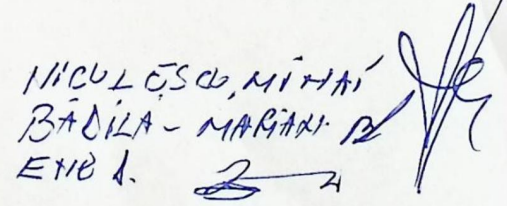 NICULESCU, MIHAI
BĂDILA - MARIAN
ENE A.